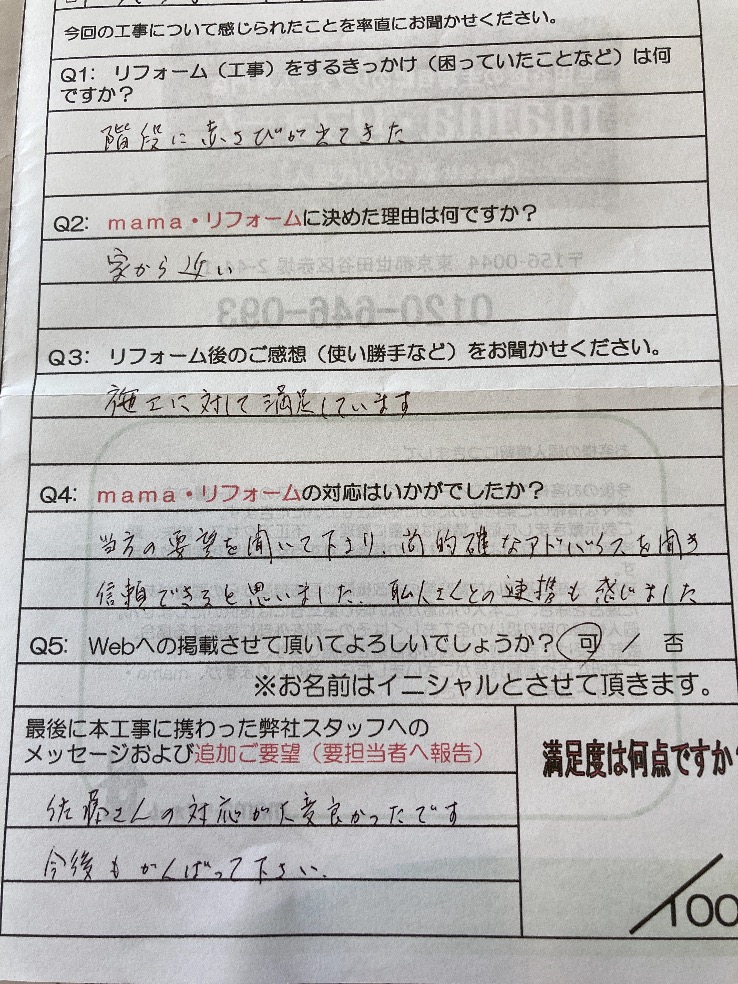 今回の工事について感じられたことを率直にお聞かせください。
Q1: リフォーム（工事）をするきっかけ（困っていたことなど）は何
ですか？
階段に赤さびが出てきた
Q2: mama・リフォームに決めた理由は何ですか？
家から近い
Q3: リフォーム後のご感想（使い勝手など）をお聞かせください。
施工に対して満足しています
Q4: mama・リフォームの対応はいかがでしたか？
当方の要望を聞いて下さり、尚的確なアドバイスを聞き
信頼できると思いました。職人さんとの連携も感じました
Q5: Webへの掲載させて頂いてよろしいでしょうか？ 可 / 否
※お名前はイニシャルとさせて頂きます。
最後に本工事に携わった弊社スタッフへの
メッセージおよび追加ご要望（要担当者へ報告）
佐藤さんの対応が大変良かったです
今後もがんばって下さい。
満足度は何点ですか
/100